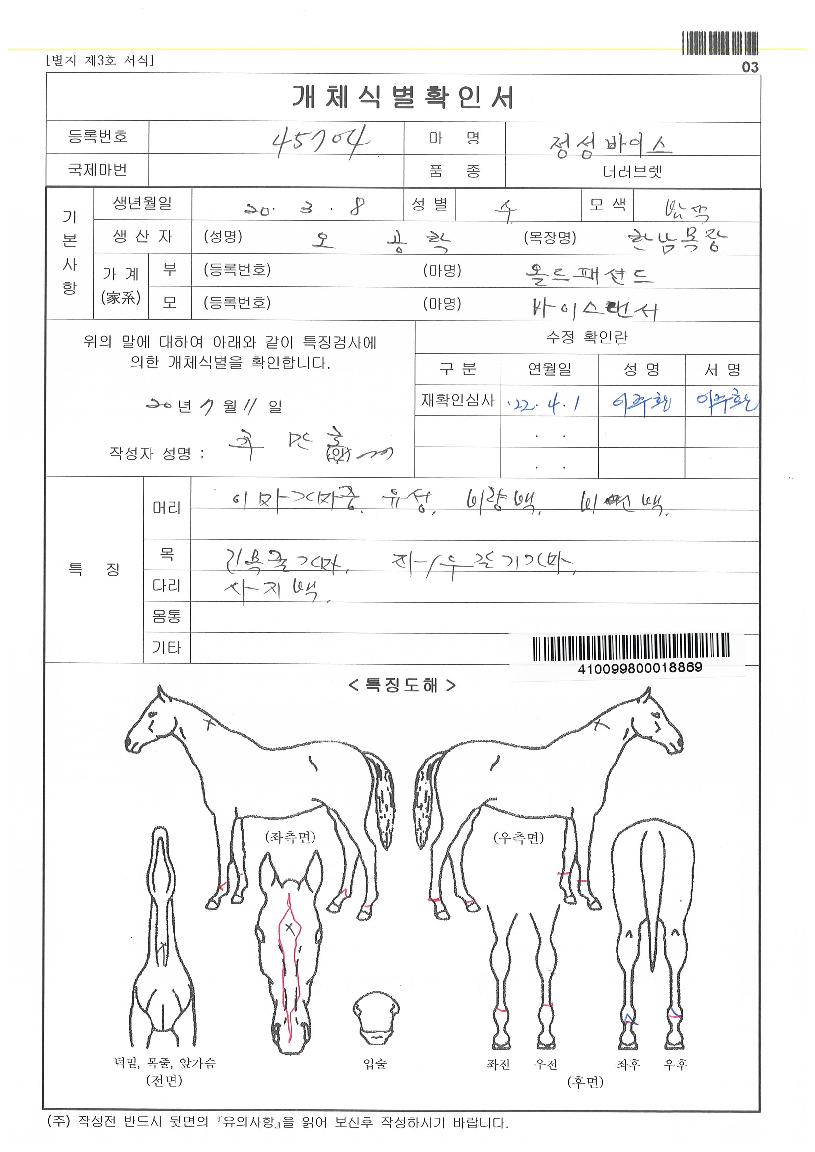 [별지 제3호 서식]
03
개체식별확인서
등록번호 45704 마 명 정성바이스
국제마번 품 종 더러브렛
기본사항
생년월일 20. 3. 8 성별 수 모색 밤색
생산자 (성명) 오 공 학 (목장명) 한남목장
가계(家系) 부 (등록번호) (마명) 올드패션드
모 (등록번호) (마명) 바이스댄서
위의 말에 대하여 아래와 같이 특징검사에
의한 개체식별을 확인합니다.
20년 7월 11일
작성자 성명 : (인)
수정 확인란
구분 연월일 성명 서명
재확인심사 '22. 4. 1
. .
. .
특 징
머리 이마가마중, 유성, 비량백, 비백.
목 가마,
다리 사지백.
몸통
기타
410099800018869
< 특징도해 >
(좌측면) (우측면)
턱밑, 목줄, 앞가슴 입술 좌전 우전 좌후 우후
(전면) (후면)
(주) 작성전 반드시 뒷면의 『유의사항』을 읽어 보신후 작성하시기 바랍니다.